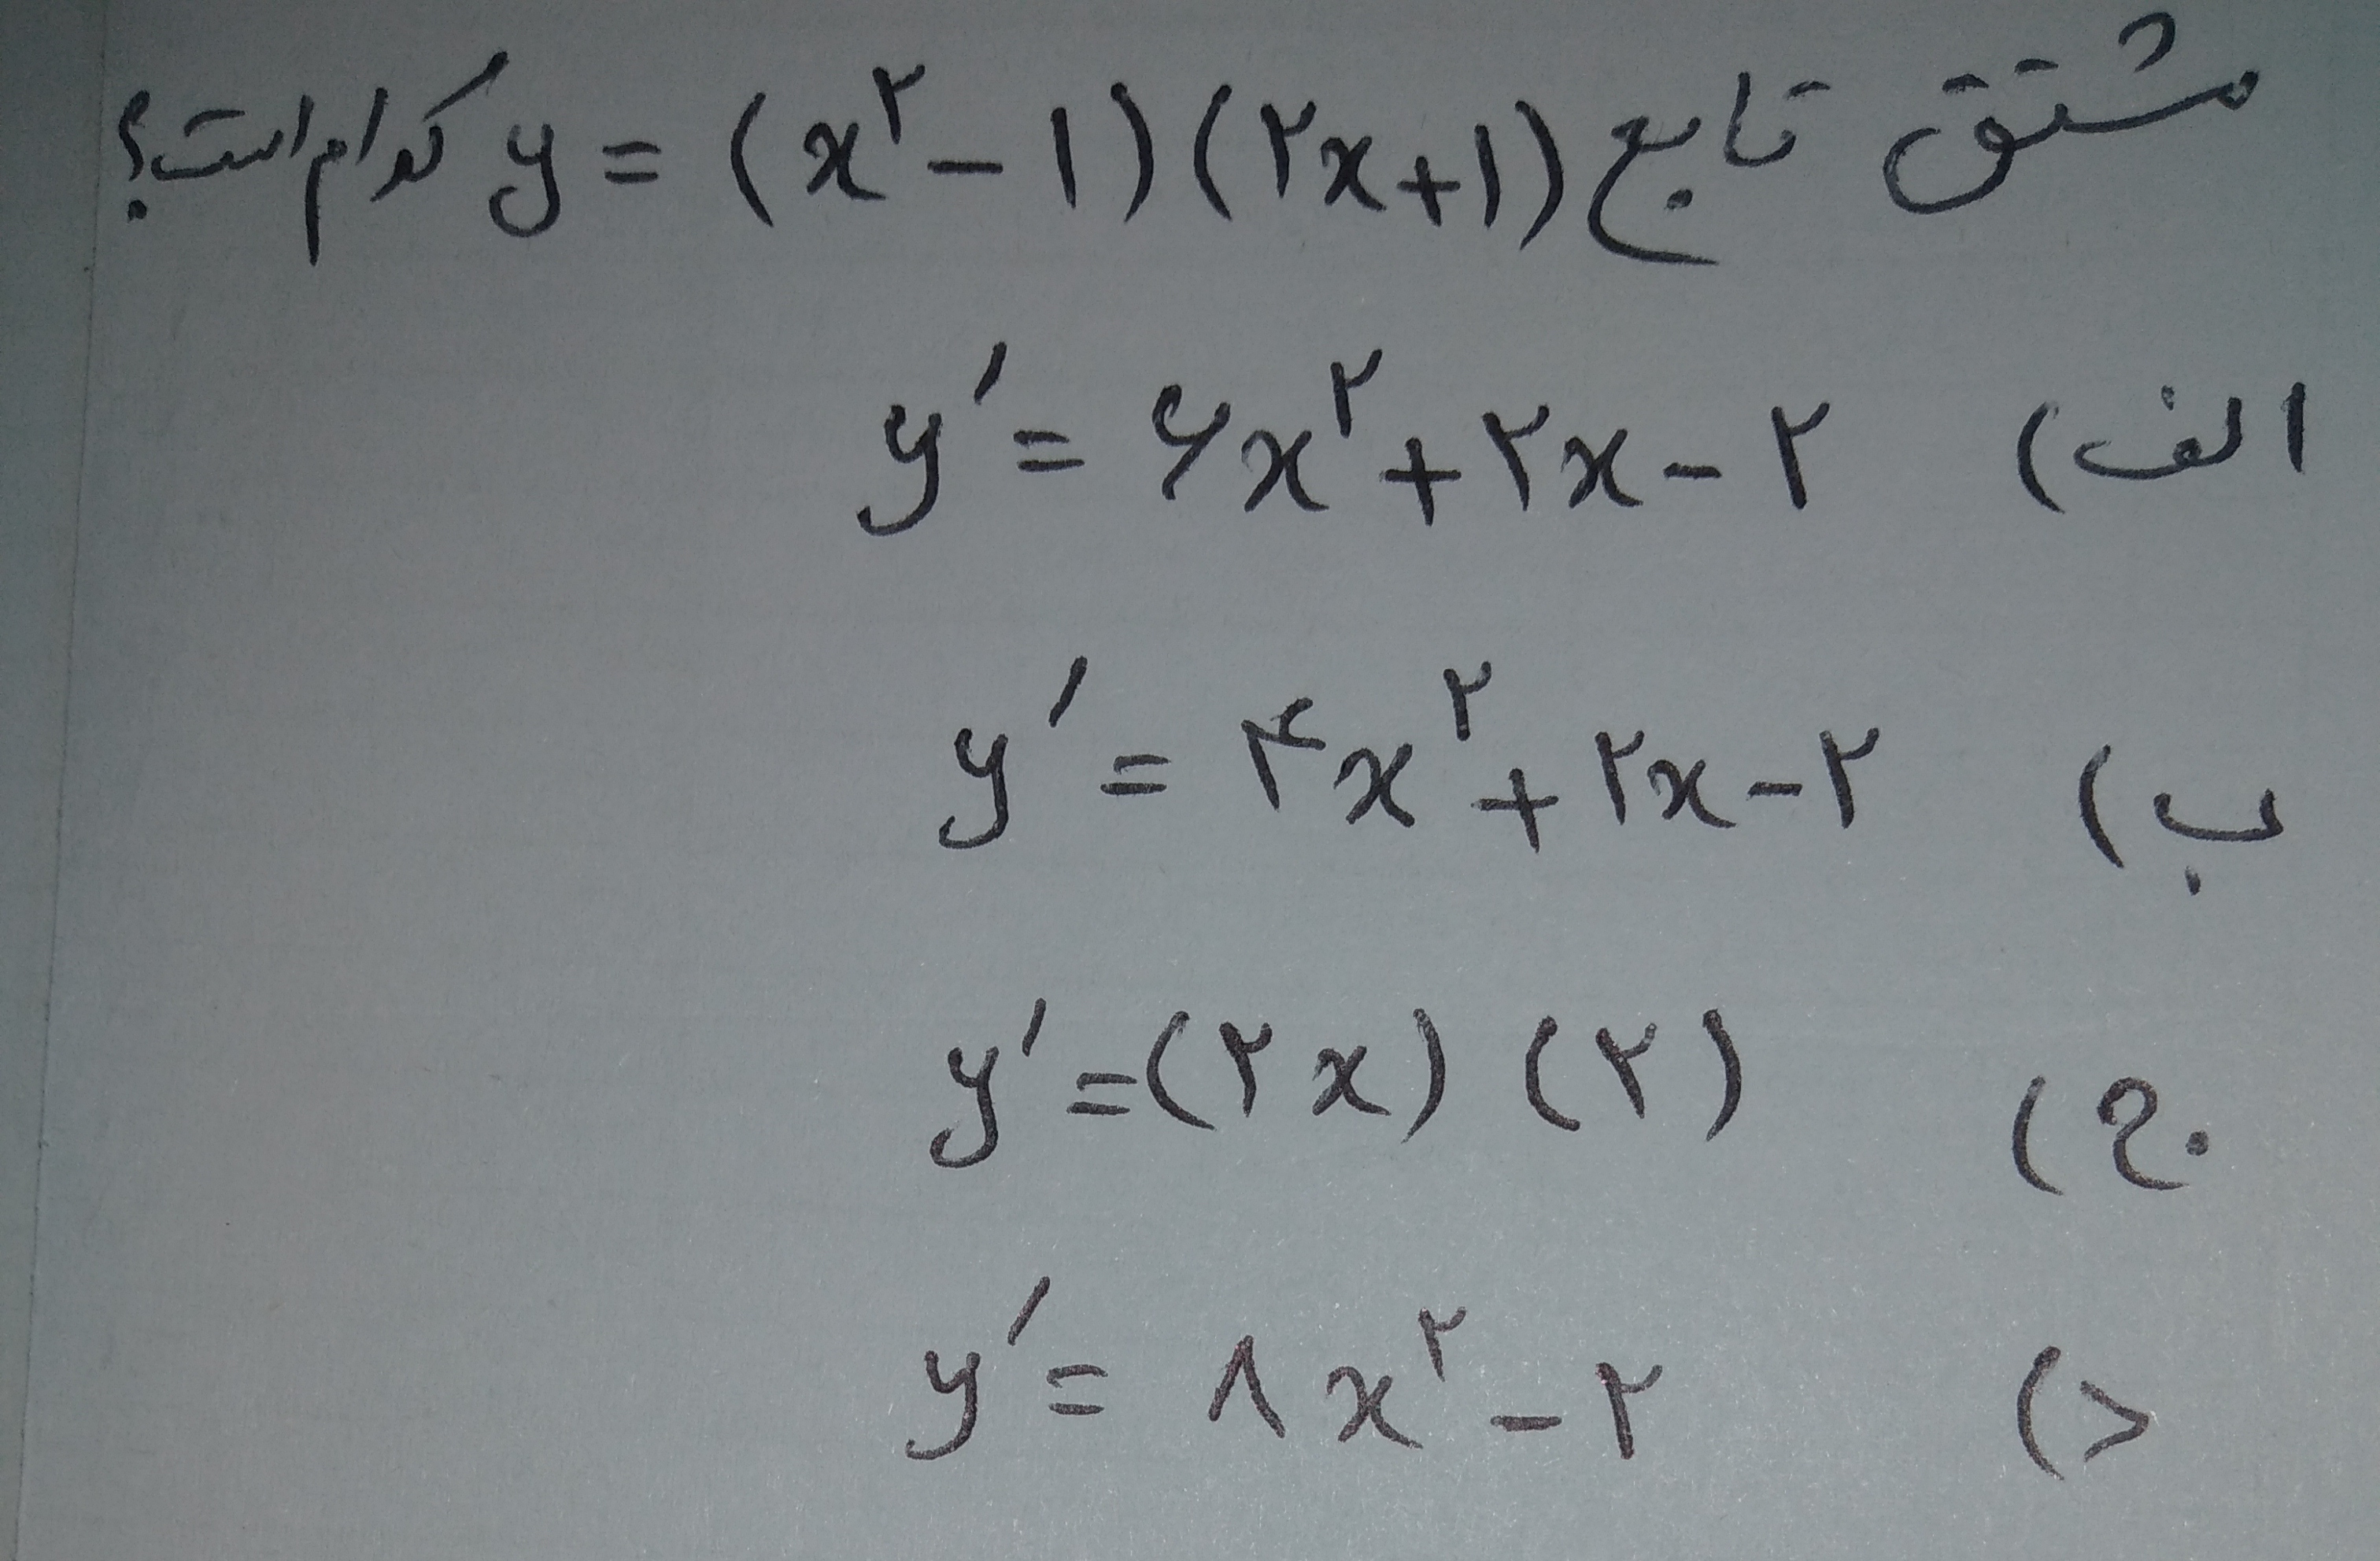 مشتق تابع y = (x^۲ - ۱)(۲x+۱) کدام است؟
الف) y′ = ۶x^۲ + ۲x - ۲
ب) y′ = ۴x^۲ + ۲x - ۲
ج) y′ = (۲x) (۲)
د) y′ = ۸x^۲ - ۲